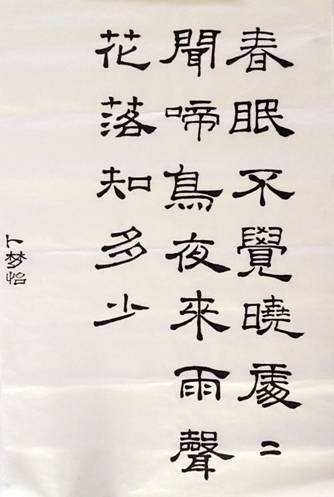 春眠不覺曉處〻
聞啼鳥夜來雨聲
花落知多少
卜梦怡